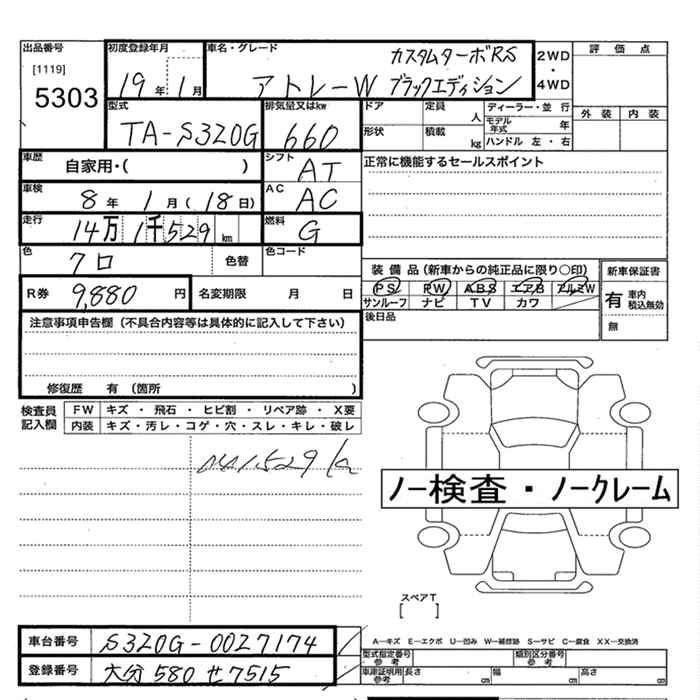 出品番号 初度登録年月 車名・グレード 2WD・4WD 評価点
[1119] 19年 1月 アトレーW カスタムターボRS
5303 ブラックエディション
外装 内装
型式 排気量又はkw ドア 定員 人 ディーラー・並行
TA-S320G 660 形状 積載 kg モデル年式 年
ハンドル 左・右
車歴 自家用・( ) シフト AT 正常に機能するセールスポイント
車検 8年 1月 (18日) AC AC
走行 14万1千529km 燃料 G
色 クロ 色替 色コード
装備品(新車からの純正品に限り〇印) 新車保証書
R券 9,880円 名変期限 月 日 PS PW ABS エアB アルミW 有 車内 税込無効
サンルーフ ナビ TV カワ
注意事項申告欄(不具合内容等は具体的に記入して下さい) 後日品 無
修復歴 有 (箇所 )
検査員記入欄 FW キズ・飛石・ヒビ割・リペア跡・X要
内装 キズ・汚レ・コゲ・穴・スレ・キレ・破レ
141529k
ノー検査・ノークレーム
スペアT
[ ]
車台番号 S320G-0027174 A―キズ E―エクボ U―凹み W―補修跡 S―サビ C―腐食 XX―交換済
型式指定番号 参考 類別区分番号 参考
登録番号 大分 580 せ 7515 車庫証明用 参考 長さ cm 幅 cm 高さ cm